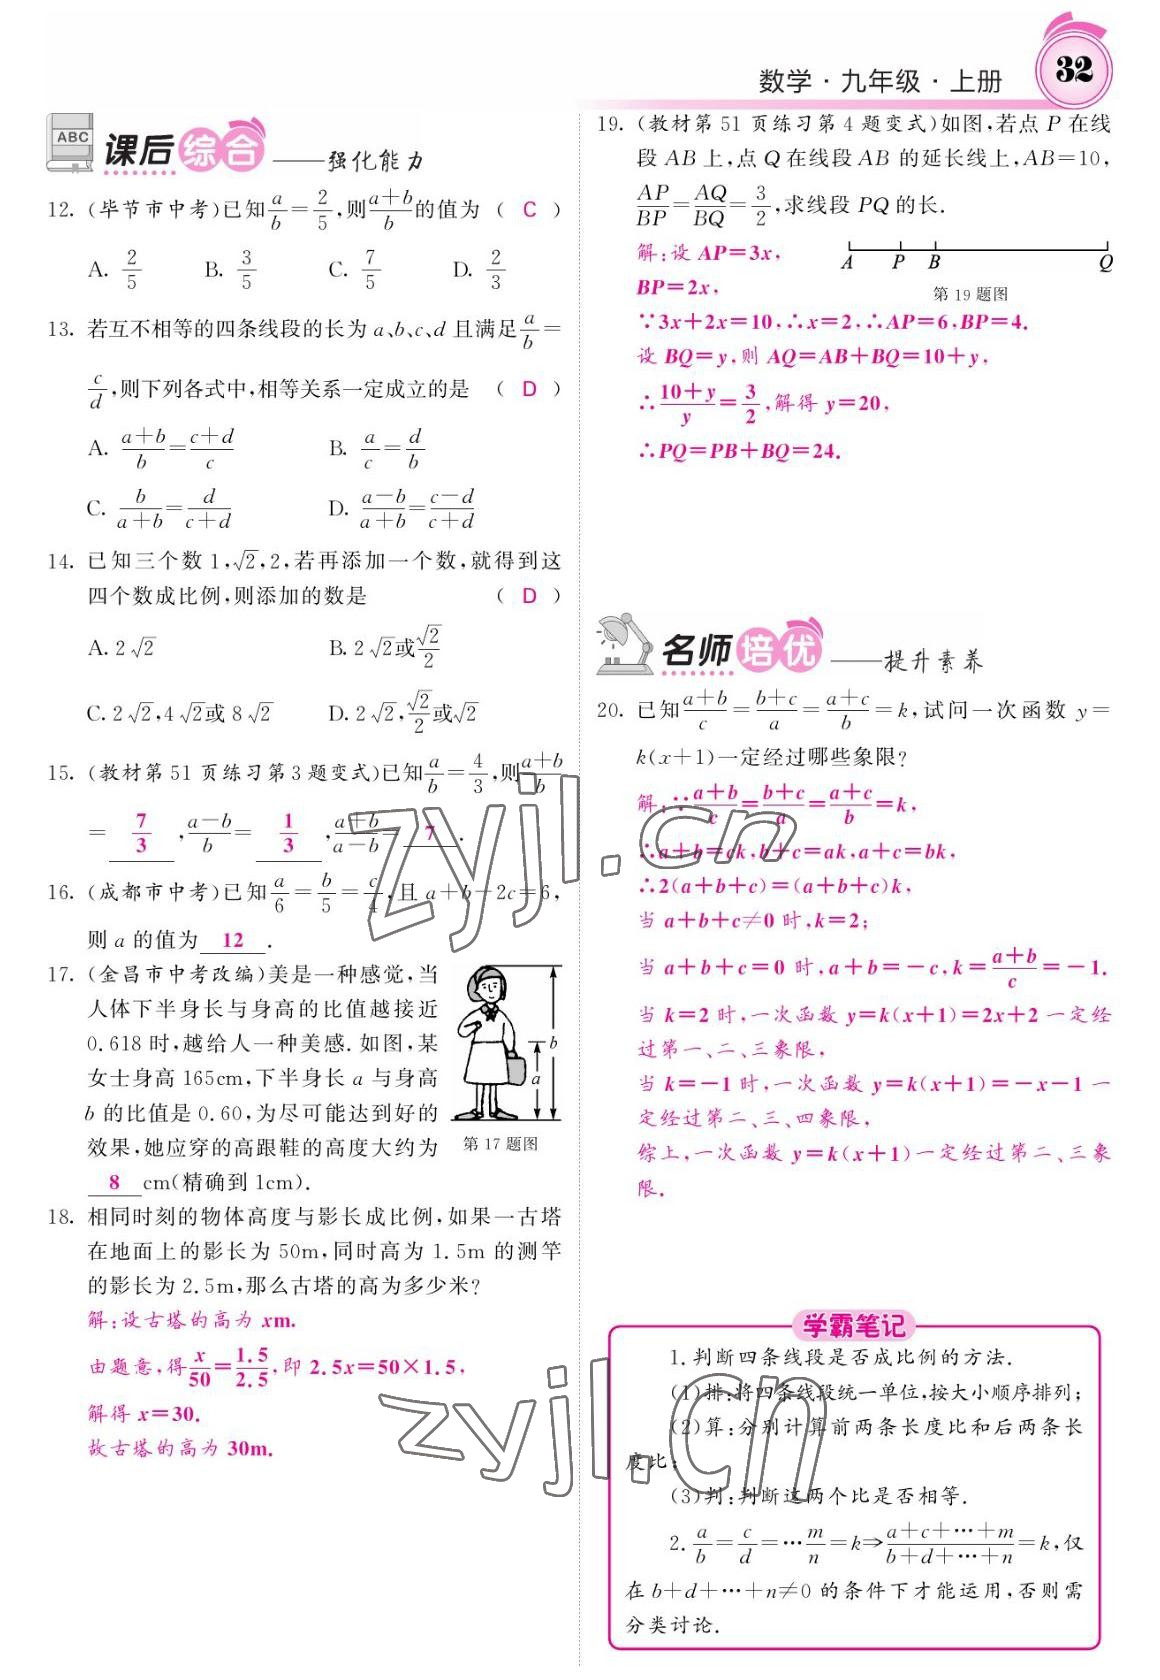 数学·九年级·上册
32
ABC
课后综合——强化能力
12. (毕节市中考)已知a/b=2/5,则(a+b)/b的值为 ( C )
A. 2/5 B. 3/5 C. 7/5 D. 2/3
13. 若互不相等的四条线段的长为 a、b、c、d 且满足a/b=
c/d,则下列各式中,相等关系一定成立的是 ( D )
A. (a+b)/b=(c+d)/c B. a/c=d/b
C. b/(a+b)=d/(c+d) D. (a-b)/(a+b)=(c-d)/(c+d)
14. 已知三个数 1,√2,2,若再添加一个数,就得到这
四个数成比例,则添加的数是 ( D )
A. 2√2 B. 2√2或√2/2
C. 2√2,4√2或 8√2 D. 2√2,√2/2或√2
15. (教材第 51 页练习第 3 题变式)已知a/b=4/3,则(a+b)/b
= 7/3 ,(a-b)/b= 1/3 ,(a+b)/(a-b)= 7 .
16. (成都市中考)已知a/6=b/5=c/4,且 a+b-2c=6,
则 a 的值为 12 .
17. (金昌市中考改编)美是一种感觉,当
人体下半身长与身高的比值越接近
0.618 时,越给人一种美感. 如图,某
女士身高 165cm,下半身长 a 与身高
b 的比值是 0.60,为尽可能达到好的
效果,她应穿的高跟鞋的高度大约为
8 cm(精确到 1cm).
b
a
第 17 题图
18. 相同时刻的物体高度与影长成比例,如果一古塔
在地面上的影长为 50m,同时高为 1.5m 的测竿
的影长为 2.5m,那么古塔的高为多少米?
解:设古塔的高为 xm.
由题意,得x/50=1.5/2.5,即 2.5x=50×1.5,
解得 x=30.
故古塔的高为 30m.
19. (教材第 51 页练习第 4 题变式)如图,若点 P 在线
段 AB 上,点 Q 在线段 AB 的延长线上,AB=10,
AP/BP=AQ/BQ=3/2,求线段 PQ 的长.
解:设 AP=3x,
BP=2x,
A P B Q
第 19 题图
∵3x+2x=10,∴x=2,∴AP=6,BP=4.
设 BQ=y,则 AQ=AB+BQ=10+y,
∴(10+y)/y=3/2,解得 y=20,
∴PQ=PB+BQ=24.
名师培优——提升素养
20. 已知(a+b)/c=(b+c)/a=(a+c)/b=k,试问一次函数 y=
k(x+1)一定经过哪些象限?
解:∵(a+b)/c=(b+c)/a=(a+c)/b=k,
∴a+b=ck,b+c=ak,a+c=bk,
∴2(a+b+c)=(a+b+c)k,
当 a+b+c≠0 时,k=2;
当 a+b+c=0 时,a+b=-c,k=(a+b)/c=-1.
当 k=2 时,一次函数 y=k(x+1)=2x+2 一定经
过第一、二、三象限,
当 k=-1 时,一次函数 y=k(x+1)=-x-1 一
定经过第二、三、四象限,
综上,一次函数 y=k(x+1)一定经过第二、三象
限.
学霸笔记
1. 判断四条线段是否成比例的方法.
(1)排:将四条线段统一单位,按大小顺序排列;
(2)算:分别计算前两条长度比和后两条长
度比;
(3)判:判断这两个比是否相等.
2. a/b=c/d=…m/n=k⇒(a+c+…+m)/(b+d+…+n)=k,仅
在 b+d+…+n≠0 的条件下才能运用,否则需
分类讨论.
zyjl.cn
zyjl.cn